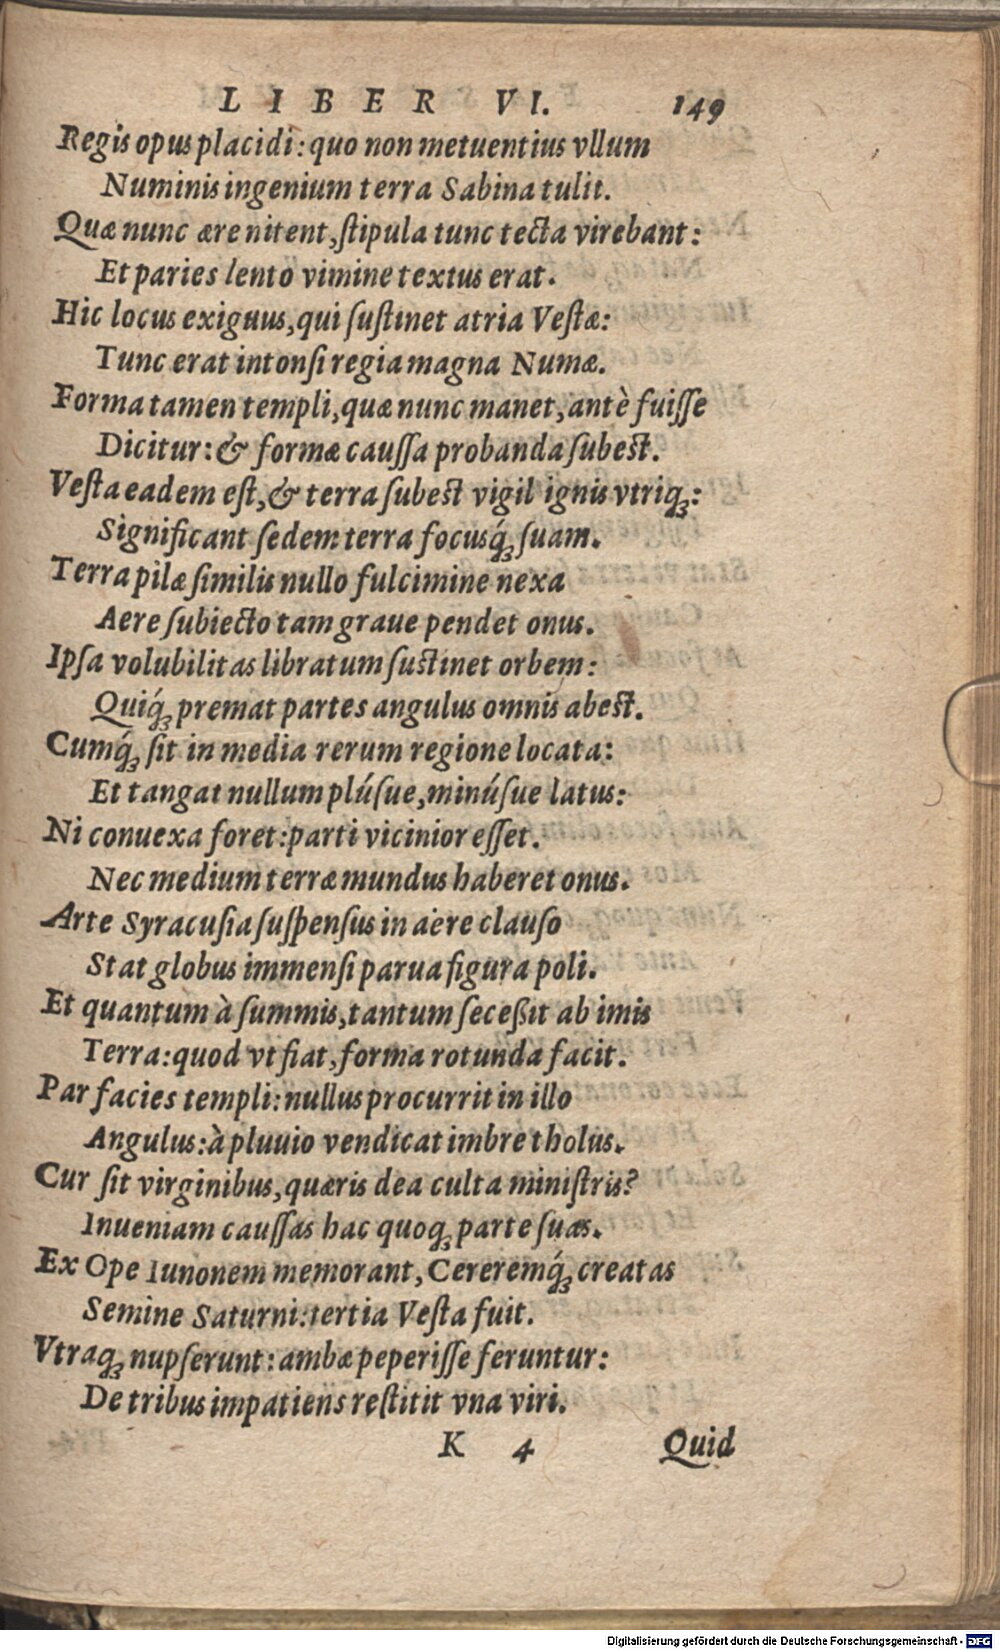 LIBER VI. 149
Regis opus placidi: quo non metuentius vllum
Numinis ingenium terra Sabina tulit.
Quæ nunc ære nitent, ſtipula tunc tecta virebant:
Et paries lento vimine textus erat.
Hic locus exiguus, qui ſuſtinet atria Veſtæ:
Tunc erat intonſi regia magna Numæ.
Forma tamen templi, quæ nunc manet, antè fuiſſe
Dicitur: & formæ cauſſa probanda ſubeſt.
Veſta eadem eſt, & terra ſubeſt vigil ignis vtriq́ꝫ:
Significant ſedem terra focusq́ꝫ ſuam.
Terra pilæ ſimilis nullo fulcimine nexa
Aere ſubiecto tam graue pendet onus.
Ipſa volubilitas libratum ſuſtinet orbem:
Quiq́ꝫ premat partes angulus omnis abeſt.
Cumq́ꝫ ſit in media rerum regione locata:
Et tangat nullum plúſue, minúſue latus:
Ni conuexa foret: parti vicinior eſſet.
Nec medium terræ mundus haberet onus.
Arte Syracuſia ſuſpenſus in aëre clauſo
Stat globus immenſi parua figura poli.
Et quantum à ſummis, tantum ſeceßit ab imis
Terra: quod vt fiat, forma rotunda facit.
Par facies templi: nullus procurrit in illo
Angulus: à pluuio vendicat imbre tholus.
Cur ſit virginibus, quæris dea culta miniſtris?
Inueniam cauſſas hac quoqꝫ parte ſuas.
Ex Ope Iunonem memorant, Cereremq́ꝫ creatas
Semine Saturni: tertia Veſta fuit.
Vtraqꝫ nupſerunt: ambæ peperiſſe feruntur:
De tribus impatiens reſtitit vna viri.
K 4 Quid
Digitalisierung gefördert durch die Deutsche Forschungsgemeinschaft - DFG